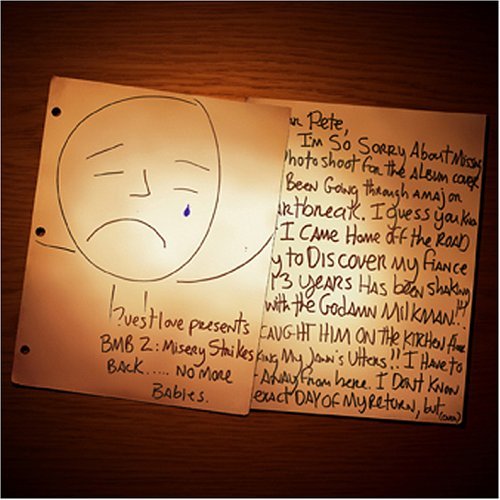 ?uestlove presents
BMB 2: Misery Strikes
BACK..... NO MORE
BABIES.
Pete,
I'm So Sorry About Missing
Photo shoot for the Album cover
Been Going through A major
Heartbreak. I guess you know
I CAME Home off the ROAD
to Discover my fiance
3 YEARS HAS been shaking
with the Godamn Milkman!!!
CAUGHT HIM ON THE KITCHEN floor
My Jawn's Utters!! I HAVE to
AWAY from here. I Don't Know
EXACT DAY OF My RETURN, but
(over)